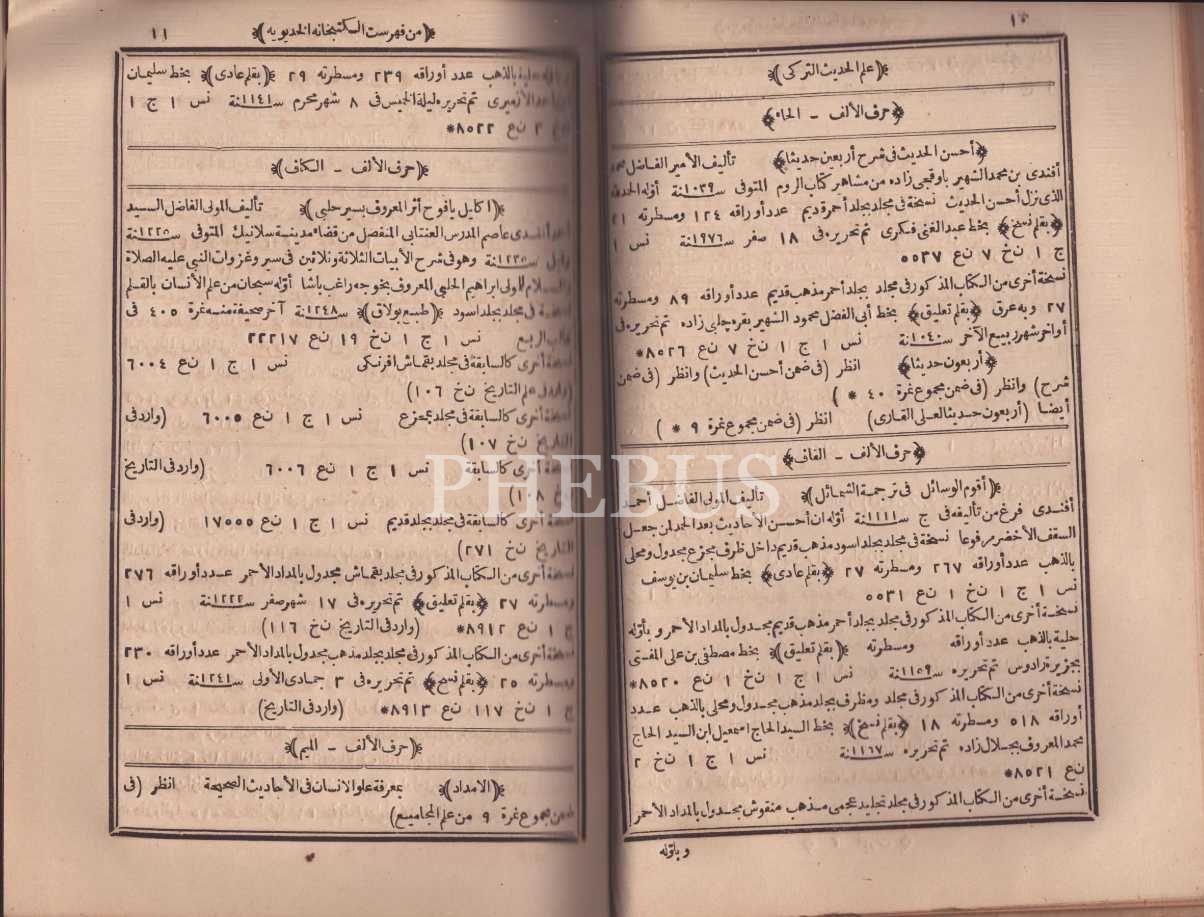 ١٠
﴿علم الحديث التركى﴾
﴿حرف الألف - الحاء﴾
﴿أحسن الحديث فى شرح أربعين حديثا﴾ تأليف الأمير الفاضل
أفندى بن محمد الشهير باوقچى زاده من مشاهير كتاب الروم المتوفى سنة ١٠٣٩ أوّله الحمد لله
الذى نزل أحسن الحديث نسخة فى مجلد بجلد أحمر قديم عدد أوراقه ١٢٤ ومسطرته ٢١
﴿بقلم نسخ﴾ بخط عبد الغنى فكرى تم تحريره فى ١٨ صفر سنة ١٩٧٦ نس ١
ج ١ ن خ ٧ ن ع ٥٥٣٧
نسخة أخرى من الكتاب المذكور فى مجلد بجلد أحمر مذهب قديم عدد أوراقه ٨٩ ومسطرته
٢٧ وبه عرق ﴿بقلم تعليق﴾ بخط أبى الفضل محمود الشهير بقره چلبى زاده تم تحريره فى
أواخر شهر ربيع الآخر سنة ١٠٤٠ نس ١ ج ١ ن خ ٧ ن ع ٨٥٢٦*
﴿أربعون حديثا﴾ انظر (فى ضمن أحسن الحديث) وانظر (فى ضمن
شرح) وانظر (فى ضمن مجموع نمرة ٤٠ *)
أيضا (أربعون حديثا لعلى القارى) انظر (فى ضمن مجموع نمرة ٩ *)
﴿حرف الألف - القاف﴾
﴿أقوم الوسائل فى ترجمة الشمائل﴾ تأليف المولى الفاضل أحمد
أفندى فرغ من تأليفه فى ج سنة ١١١١ أوّله ان أحسن الأحاديث بعد الحمد لمن جعل
السقف الأخضر مرفوعا نسخة فى مجلد بجلد اسود مذهب قديم داخل ظرف مجزع مجدول ومحلى
بالذهب عدد أوراقه ٢٦٧ ومسطرته ٢٧ ﴿بقلم عادى﴾ بخط سليمان بن يوسف
نس ١ ج ١ ن خ ١ ن ع ٥٥٣١
نسخة أخرى من الكتاب المذكور فى مجلد بجلد أحمر مذهب قديم مجدول بالمداد الأحمر وبأوّله
حلية بالذهب عدد أوراقه ومسطرته ﴿بقلم تعليق﴾ بخط مصطفى بن على المفتى
بجزيرة رادوس تم تحريره سنة ١١٥٩ نس ١ ج ١ ن خ ١ ن ع ٨٥٢٠*
نسخة أخرى من الكتاب المذكور فى مجلد ومظرف بجلد مذهب مجدول ومحلى بالذهب عدد
أوراقه ٥١٨ ومسطرته ١٨ ﴿بقلم نسخ﴾ بخط السيد الحاج اسمعيل ابن السيد الحاج
محمد المعروف بجلال زاده تم تحريره سنة ١١٦٧ نس ١ ج ١ ن خ ٢
ن ع ٨٥٢١*
نسخة أخرى من الكتاب المذكور فى مجلد تجليد عجمى مذهب منقوش مجدول بالمداد الأحمر
وبأوّله
﴿من فهرست الكتبخانه الخديويه﴾ ١١
حلية بالذهب عدد أوراقه ٢٣٩ ومسطرته ٢٩ ﴿بقلم عادى﴾ بخط سليمان
الأزميرى تم تحريره ليلة الخميس فى ٨ شهر محرم سنة ١١٤١ نس ١ ج ١
٢ ن ع ٨٥٢٢*
﴿حرف الألف - الكاف﴾
﴿اكليل يافوح أثر المعروف بسير حلبى﴾ تأليف المولى الفاضل السيد
عاصم المدرس العنتابى المنفصل من قضاء مدينة سلانيك المتوفى سنة ١٢٢٥
سنة ١٢٣٥ وهو فى شرح الأبيات الثلاثة وثلاثين فى سير وغزوات النبى عليه الصلاة
والسلام للمولى ابراهيم الحلبى المعروف بخوجه راغب باشا أوّله سبحان من علم الأنسان بالقلم
نسخة فى مجلد بجلد اسود ﴿طبع بولاق﴾ سنة ١٢٤٨ آخر صحيفة منه نمرة ٤٠٥ فى
قالب الربع نس ١ ج ١ ن خ ١٩ ن ع ٢٢٢١٧
نسخة أخرى كالسابقة فى مجلد بقماش افرنكى نس ١ ج ١ ن ع ٦٠٠٤
(وارد فى علم التاريخ ن خ ١٠٦)
نسخة أخرى كالسابقة فى مجلد بمجزع نس ١ ج ١ ن ع ٦٠٠٥ (وارد فى
التاريخ ن خ ١٠٧)
نسخة أخرى كالسابقة نس ١ ج ١ ن ع ٦٠٠٦ (وارد فى التاريخ
ن خ ١٠٨)
نسخة أخرى كالسابقة فى مجلد بجلد قديم نس ١ ج ١ ن ع ١٧٥٥٥ (وارد فى
التاريخ ن خ ٢٧١)
نسخة أخرى من الكتاب المذكور فى مجلد بقماش مجدول بالمداد الأحمر عدد أوراقه ٢٧٦
ومسطرته ٢٧ ﴿بقلم تعليق﴾ تم تحريره فى ١٧ شهر صفر سنة ١٢٢٢ نس ١
ج ١ ن ع ٨٩١٢* (وارد فى التاريخ ن خ ١١٦)
نسخة أخرى من الكتاب المذكور فى مجلد بجلد مذهب مجدول بالمداد الأحمر عدد أوراقه ٢٣٠
ومسطرته ٢٥ ﴿بقلم نسخ﴾ تم تحريره فى ٣ جمادى الأولى سنة ١٢٤١ نس ١
ج ١ ن خ ١١٧ ن ع ٨٩١٣* (وارد فى التاريخ)
﴿حرف الألف - الميم﴾
﴿الامداد﴾ بمعرفة علو الاسناد فى الأحاديث الصحيحة انظر (فى
ضمن مجموع نمرة ٩ من علم المجاميع)
PHEBUS